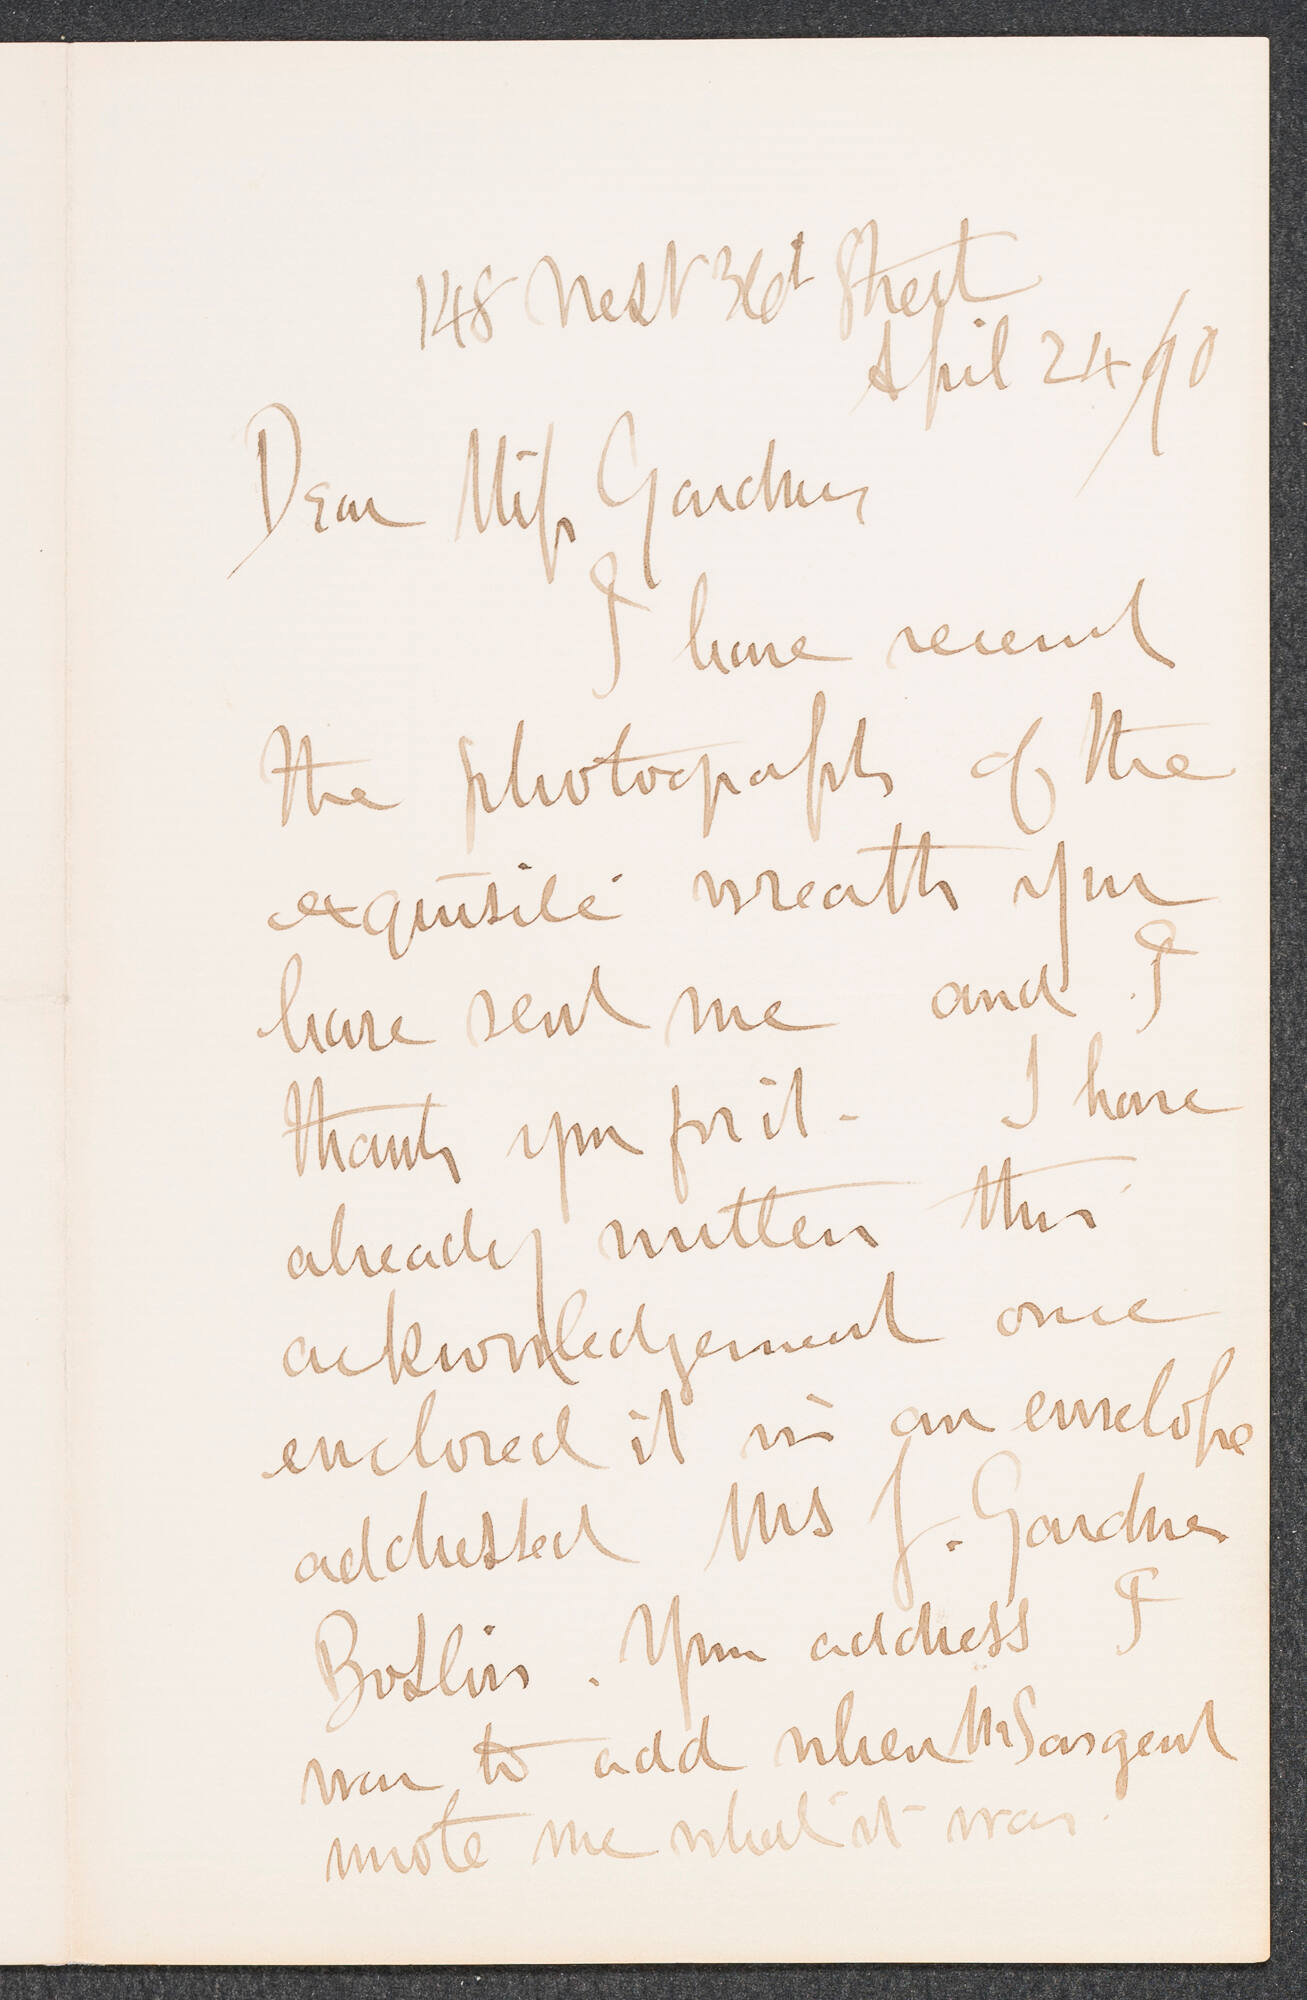 148 West 36t Street
April 24/90
Dear Miss Gardner
I have received
the photograph of the
exquisite wreath you
have sent me and I
thank you for it - I have
already written this
acknowledgement once
enclosed it in an envelope
addressed Mrs J. Gardner
Boston. Your address I
was to add when Mr Sargent
wrote me what it was.